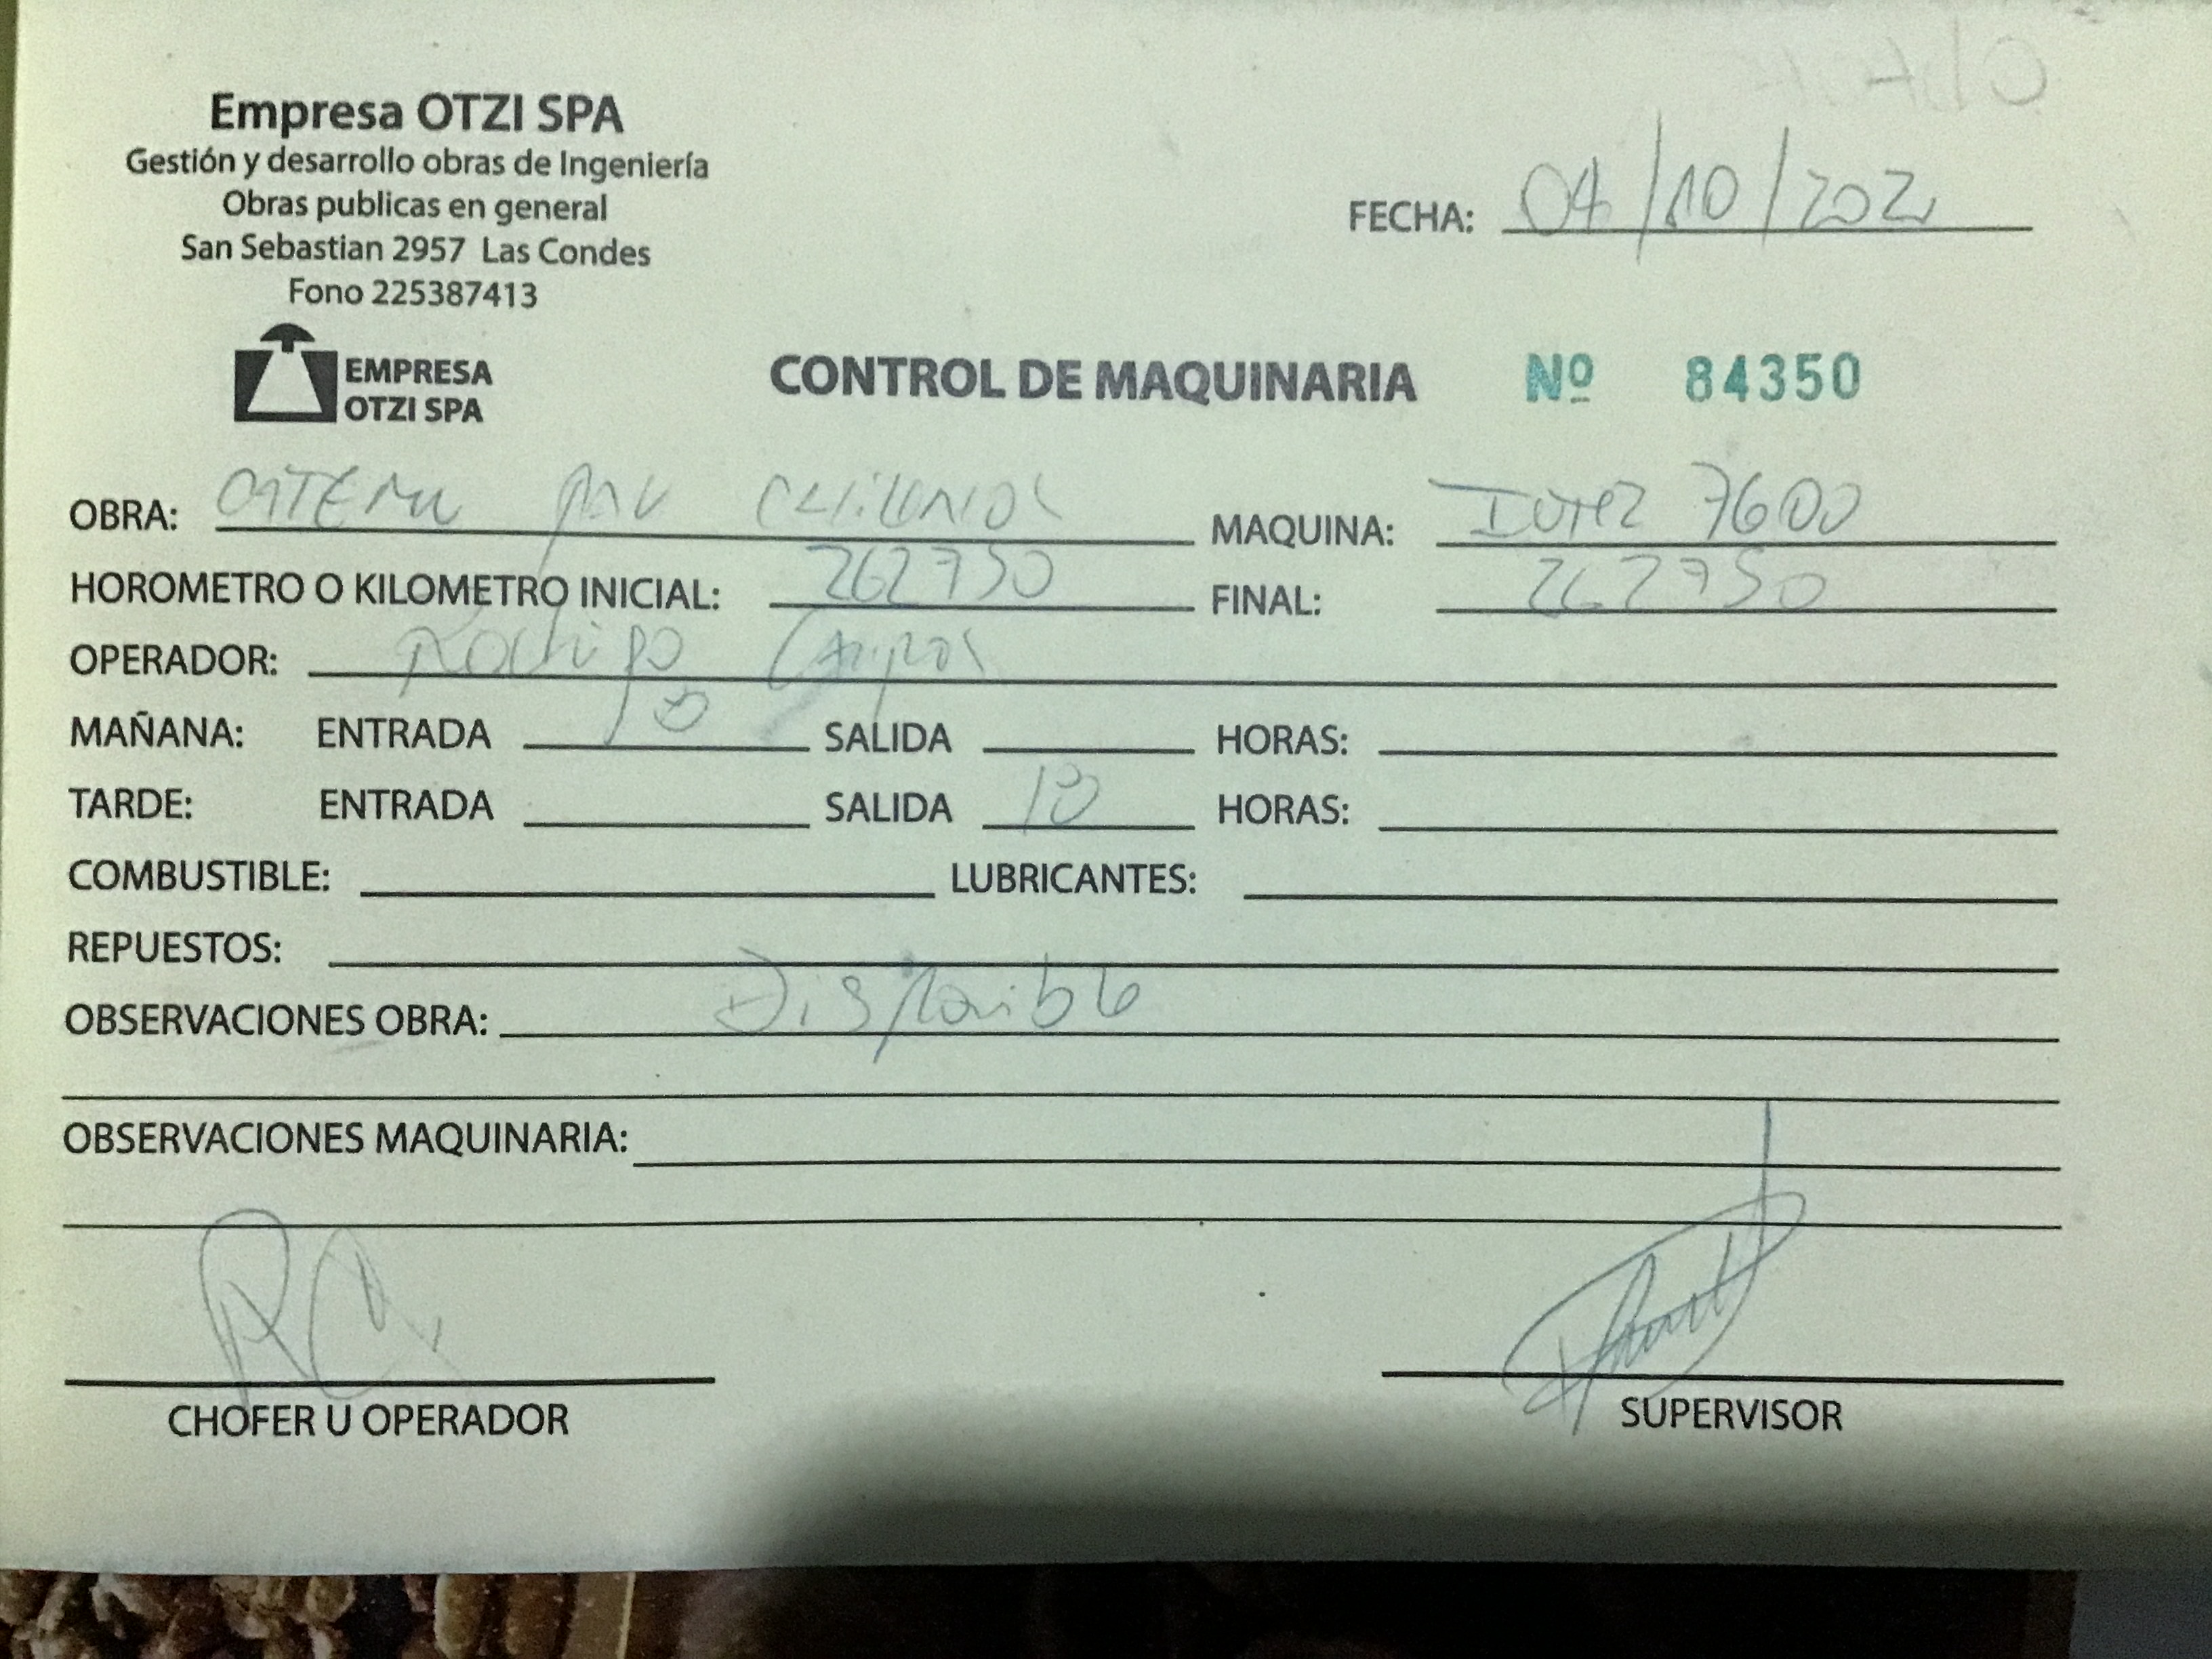 Empresa OTZI SPA
Gestión y desarrollo obras de Ingeniería
Obras publicas en general
San Sebastian 2957 Las Condes
Fono 225387413
FECHA: 04/10/202
EMPRESA
OTZI SPA
CONTROL DE MAQUINARIA Nº 84350
OBRA: MAQUINA: Inter 7600
HOROMETRO O KILOMETRO INICIAL: 262750 FINAL: 262750
OPERADOR: Rodrigo Campos
MAÑANA: ENTRADA 8 SALIDA HORAS:
TARDE: ENTRADA SALIDA 18 HORAS:
COMBUSTIBLE: LUBRICANTES:
REPUESTOS:
OBSERVACIONES OBRA: Disponible
OBSERVACIONES MAQUINARIA:
CHOFER U OPERADOR
SUPERVISOR